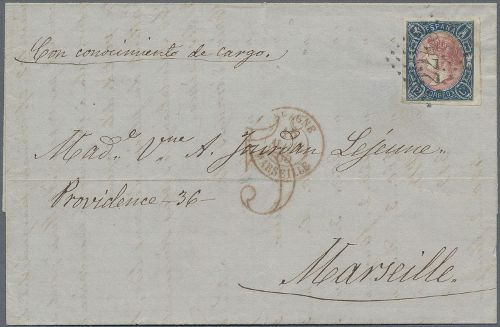 ESPAÑA
Con conocimiento de cargo.
ESPAGNE
MARSEILLE
Mad.e Vve A. Jourdan Lejeune.
Providence - 36 -
Marseille.